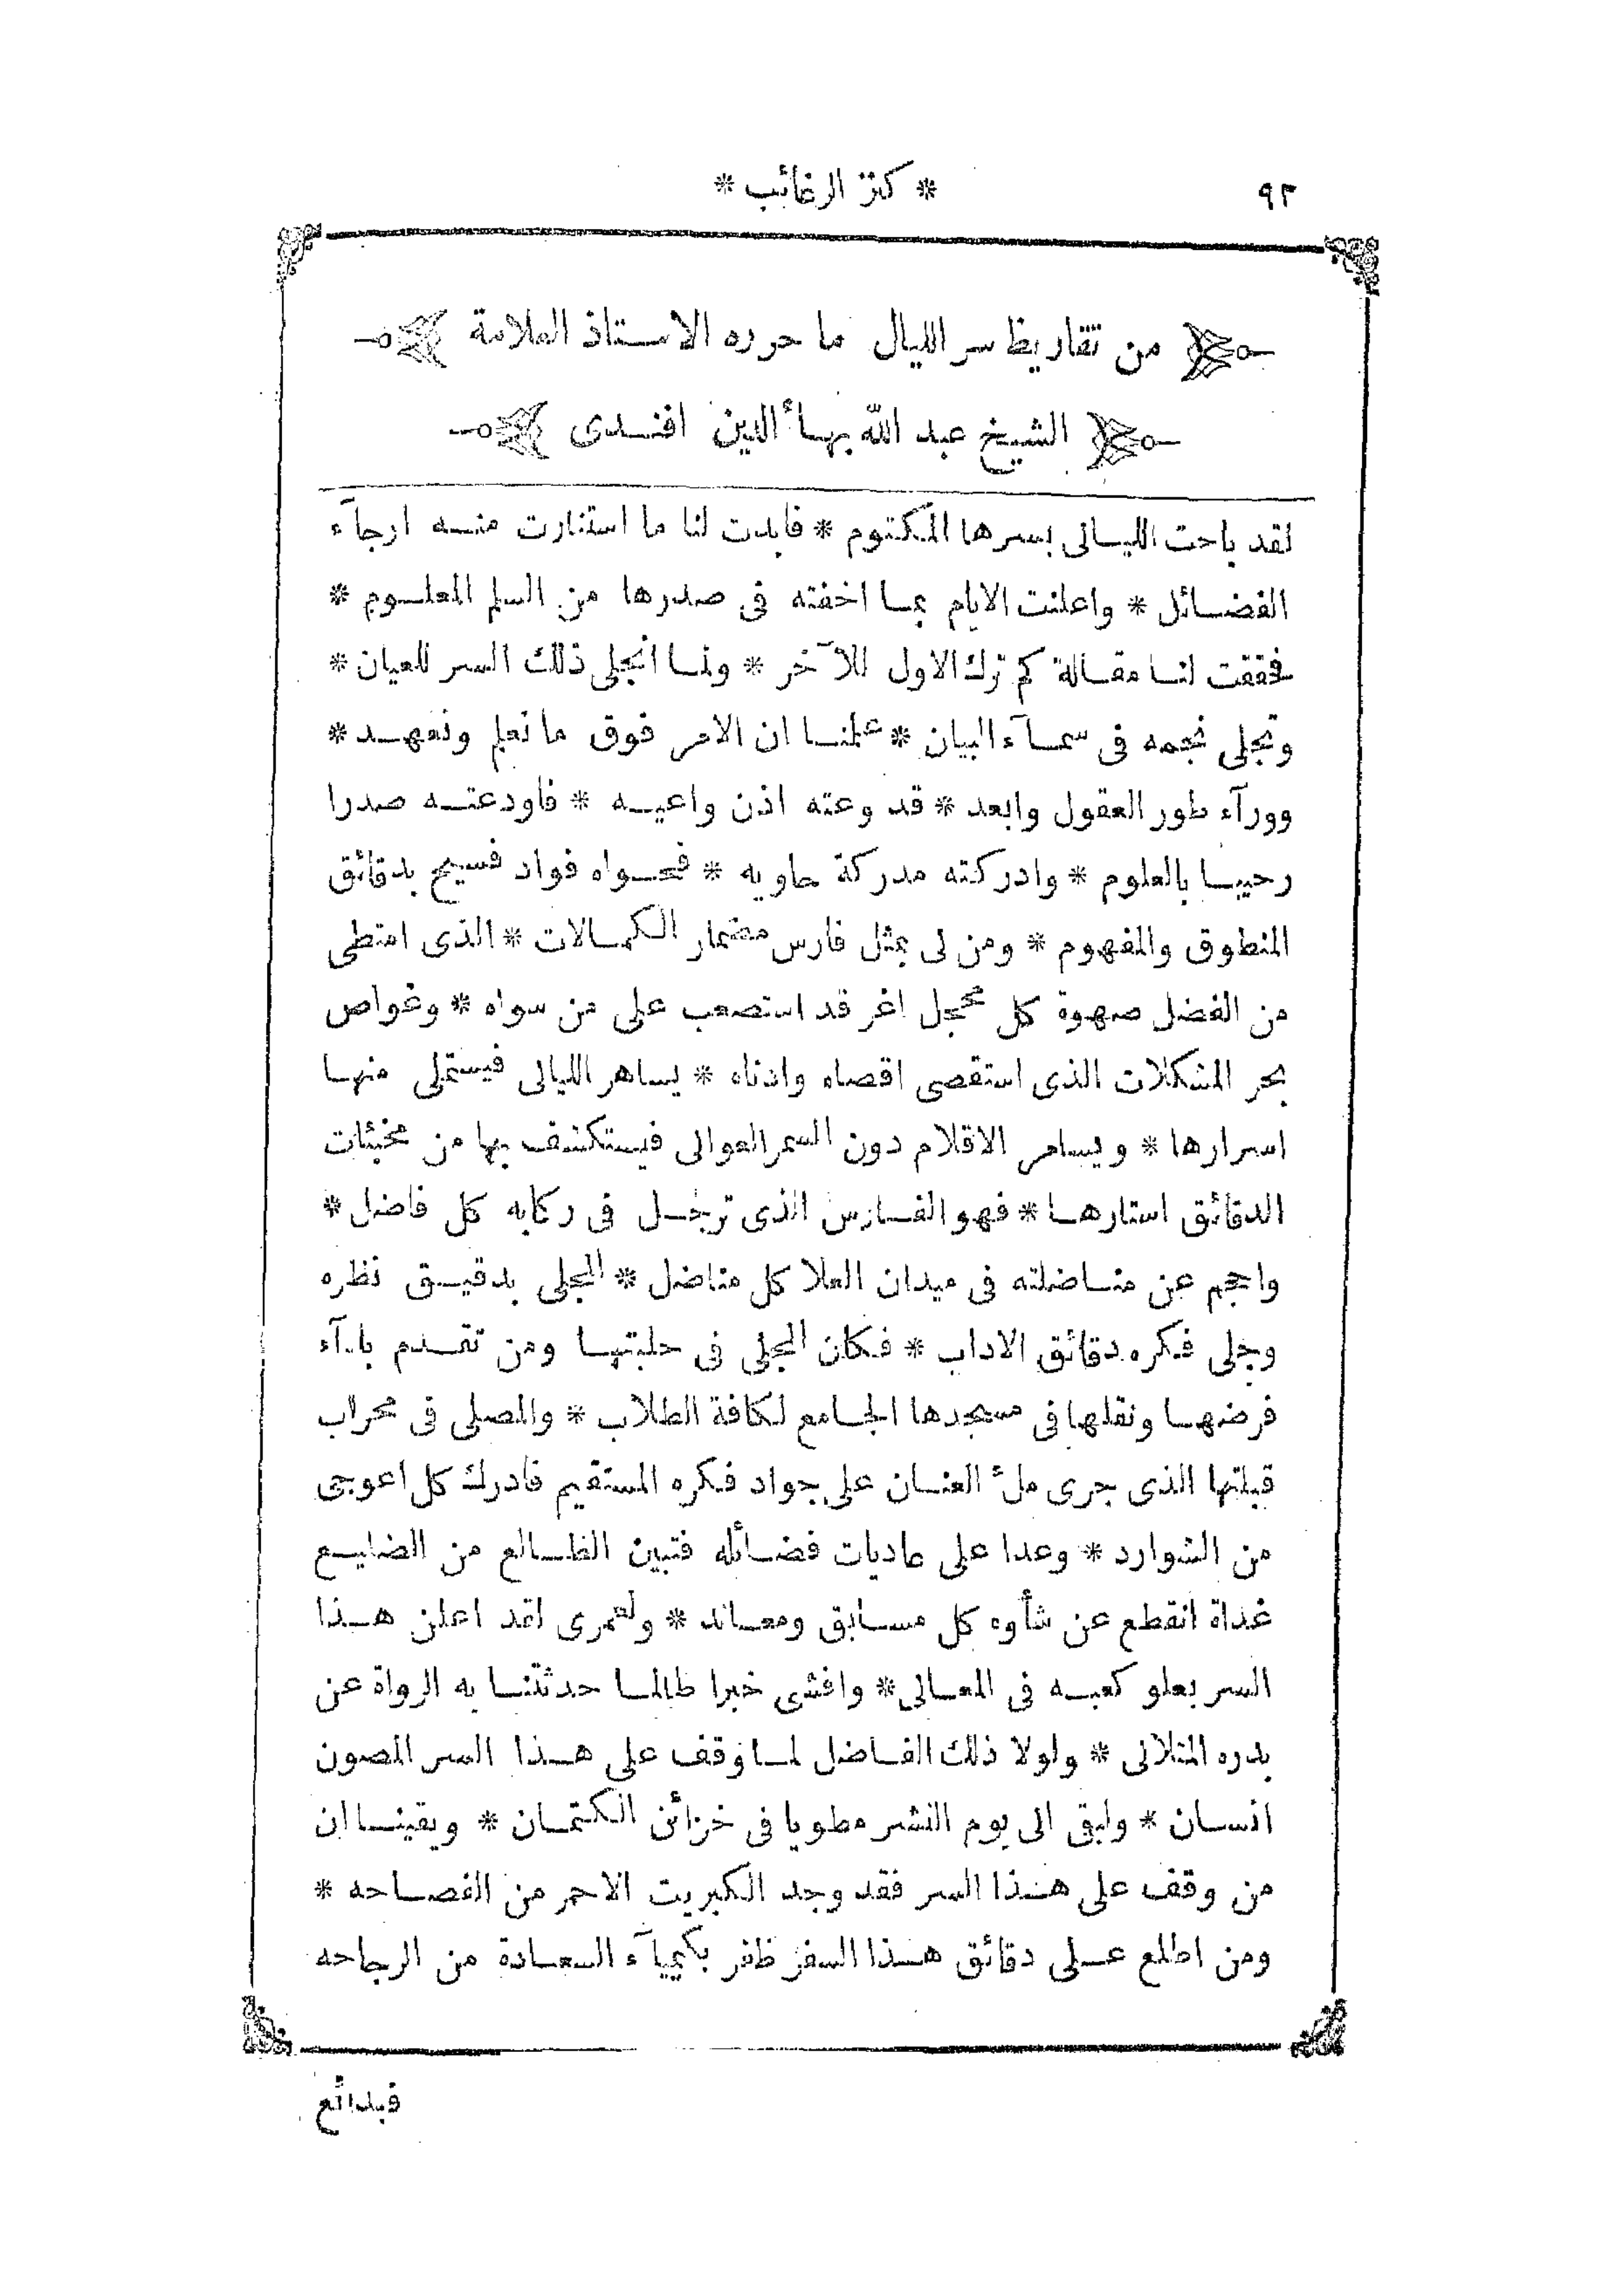 ٩٢ * كنز الرغائب *
من تقاريظ سر الليال ما حرره الاستاذ العلامة
الشيخ عبد الله بهاء الدين افندى
لقد باحت الليالى بسرها المكتوم * فابدت لنا ما استنارت منه ارجآء
الفضائل * واعلنت الايام بما اخفته فى صدرها من السلم المعلوم *
فحققت لنا مقالة كم ترك الاول للآخر * ولما انجلى ذلك السر للعيان *
وتجلى نجمه فى سمآء البيان * علمنا ان الامر فوق ما نعلم ونعهد *
وورآء طور العقول وابعد * قد وعته اذن واعيه * فاودعته صدرا
رحيبا بالعلوم * وادركته مدركة حاويه * فحواه فواد فسيح بدقائق
المنطوق والمفهوم * ومن لى بمثل فارس مضمار الكمالات * الذى امتطى
من الفضل صهوة كل محجل اغر قد استصعب على من سواه * وغواص
بحر المشكلات الذى استقصى اقصاه وادناه * يساهر الليالى فيستملى منها
اسرارها * ويسامر الاقلام دون السمر العوالى فيستكشف بها من مخبئات
الدقائق استارها * فهو الفارس الذى ترجل فى ركابه كل فاضل *
واحجم عن مناضلته فى ميدان العلا كل مناضل * المجلى بدقيق نظره
وجلى فكره دقائق الاداب * فكان المجلى فى حلبتها ومن تقدم بادآء
فرضها ونفلها فى مسجدها الجامع لكافة الطلاب * والمصلى فى محراب
قبلتها الذى جرى ملء العنان على جواد فكره المستقيم فادرك كل اعوجى
من الشوارد * وعدا على عاديات فضائله فتبين الظالع من الضليع
غداة انقطع عن شأوه كل مسابق ومعاند * ولعمرى لقد اعلن هذا
السر بعلو كعبه فى المعالى * وافشى خبرا طالما حدثتنا به الرواة عن
بدره المتلالى * ولولا ذلك الفاضل لما وقف على هذا السر المصون
انسان * ولبقى الى يوم النشر مطويا فى خزائن الكتمان * ويقينا ان
من وقف على هذا السر فقد وجد الكبريت الاحمر من الفصاحه *
ومن اطلع على دقائق هذا السفر ظفر بكيميآء السعادة من الرجاحه
فبدائع